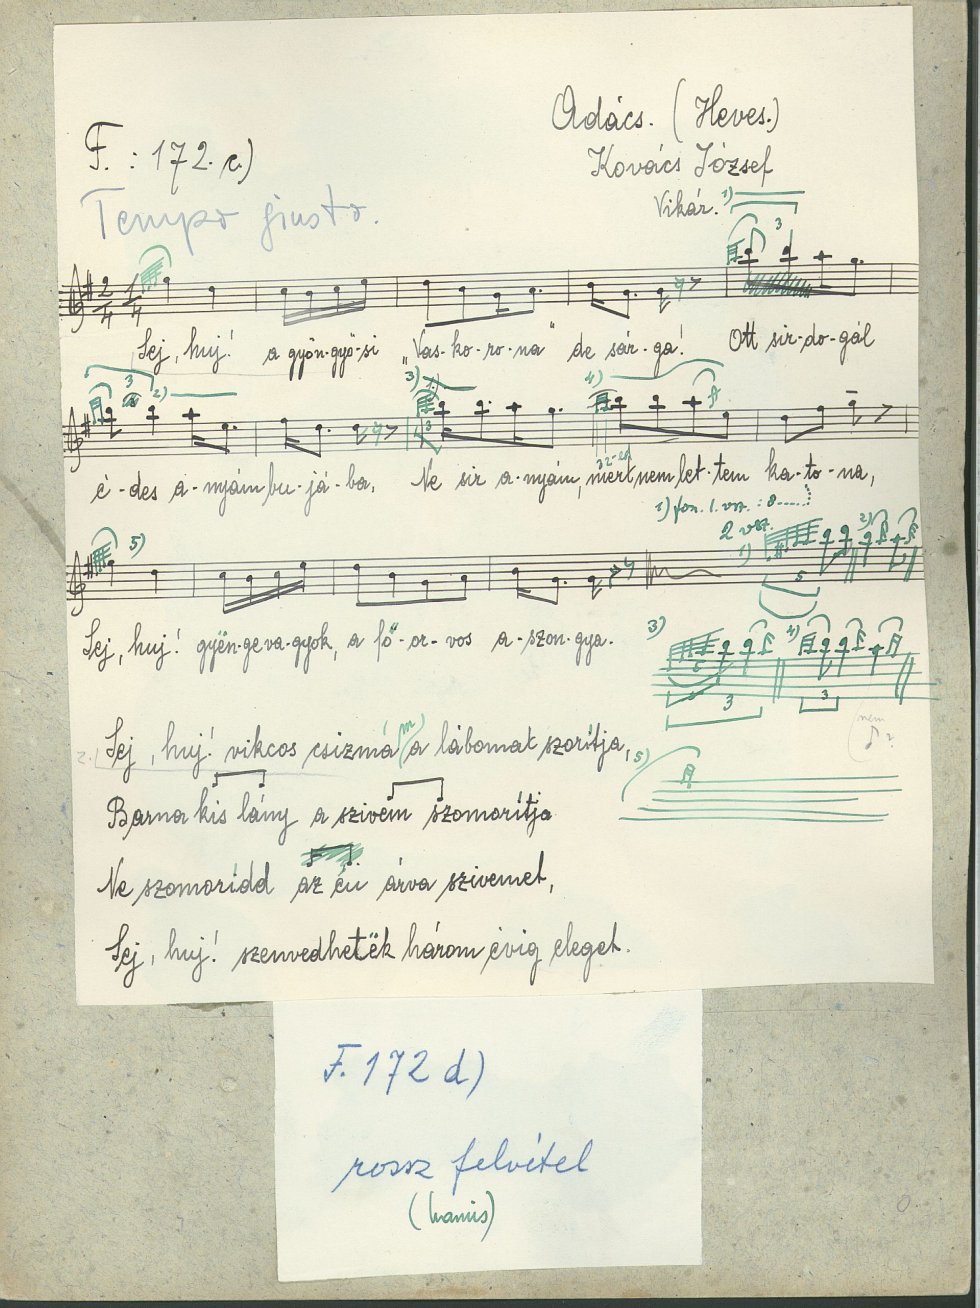 Adács. (Heves.)
F. : 172. c.)
Kovács József
Tempo giusto.
Vikár. 1)
3
2/4 1/4
Sej, huj! a gyön-gyö-si „Vas-ko-ro-na" de sár-ga! Ott sir-do-gál
3 2) 3) 1.) 4)
3
32-ed
é-des a-nyám bu-já-ba, Ne sir a-nyám, mert nem let-tem ka-to-na,
1) fon. 1. vsz. : 8......
2 vsz.
5) 1) 2)
5
Sej, huj! gyën-ge va-gyok, a fő-or-vos a-szon-gya.
3) 4)
5
3 3
(nem ♪?
2. Sej, huj! vikcos csizmá(m) a lábomat szorítja,
5)
Barna kis lány a szivem szomorítja
Ne szomorídd az én árva szivemet,
Sej, huj! szenvedhetëk három évig eleget.
F. 172 d)
rossz felvétel
(hamis)